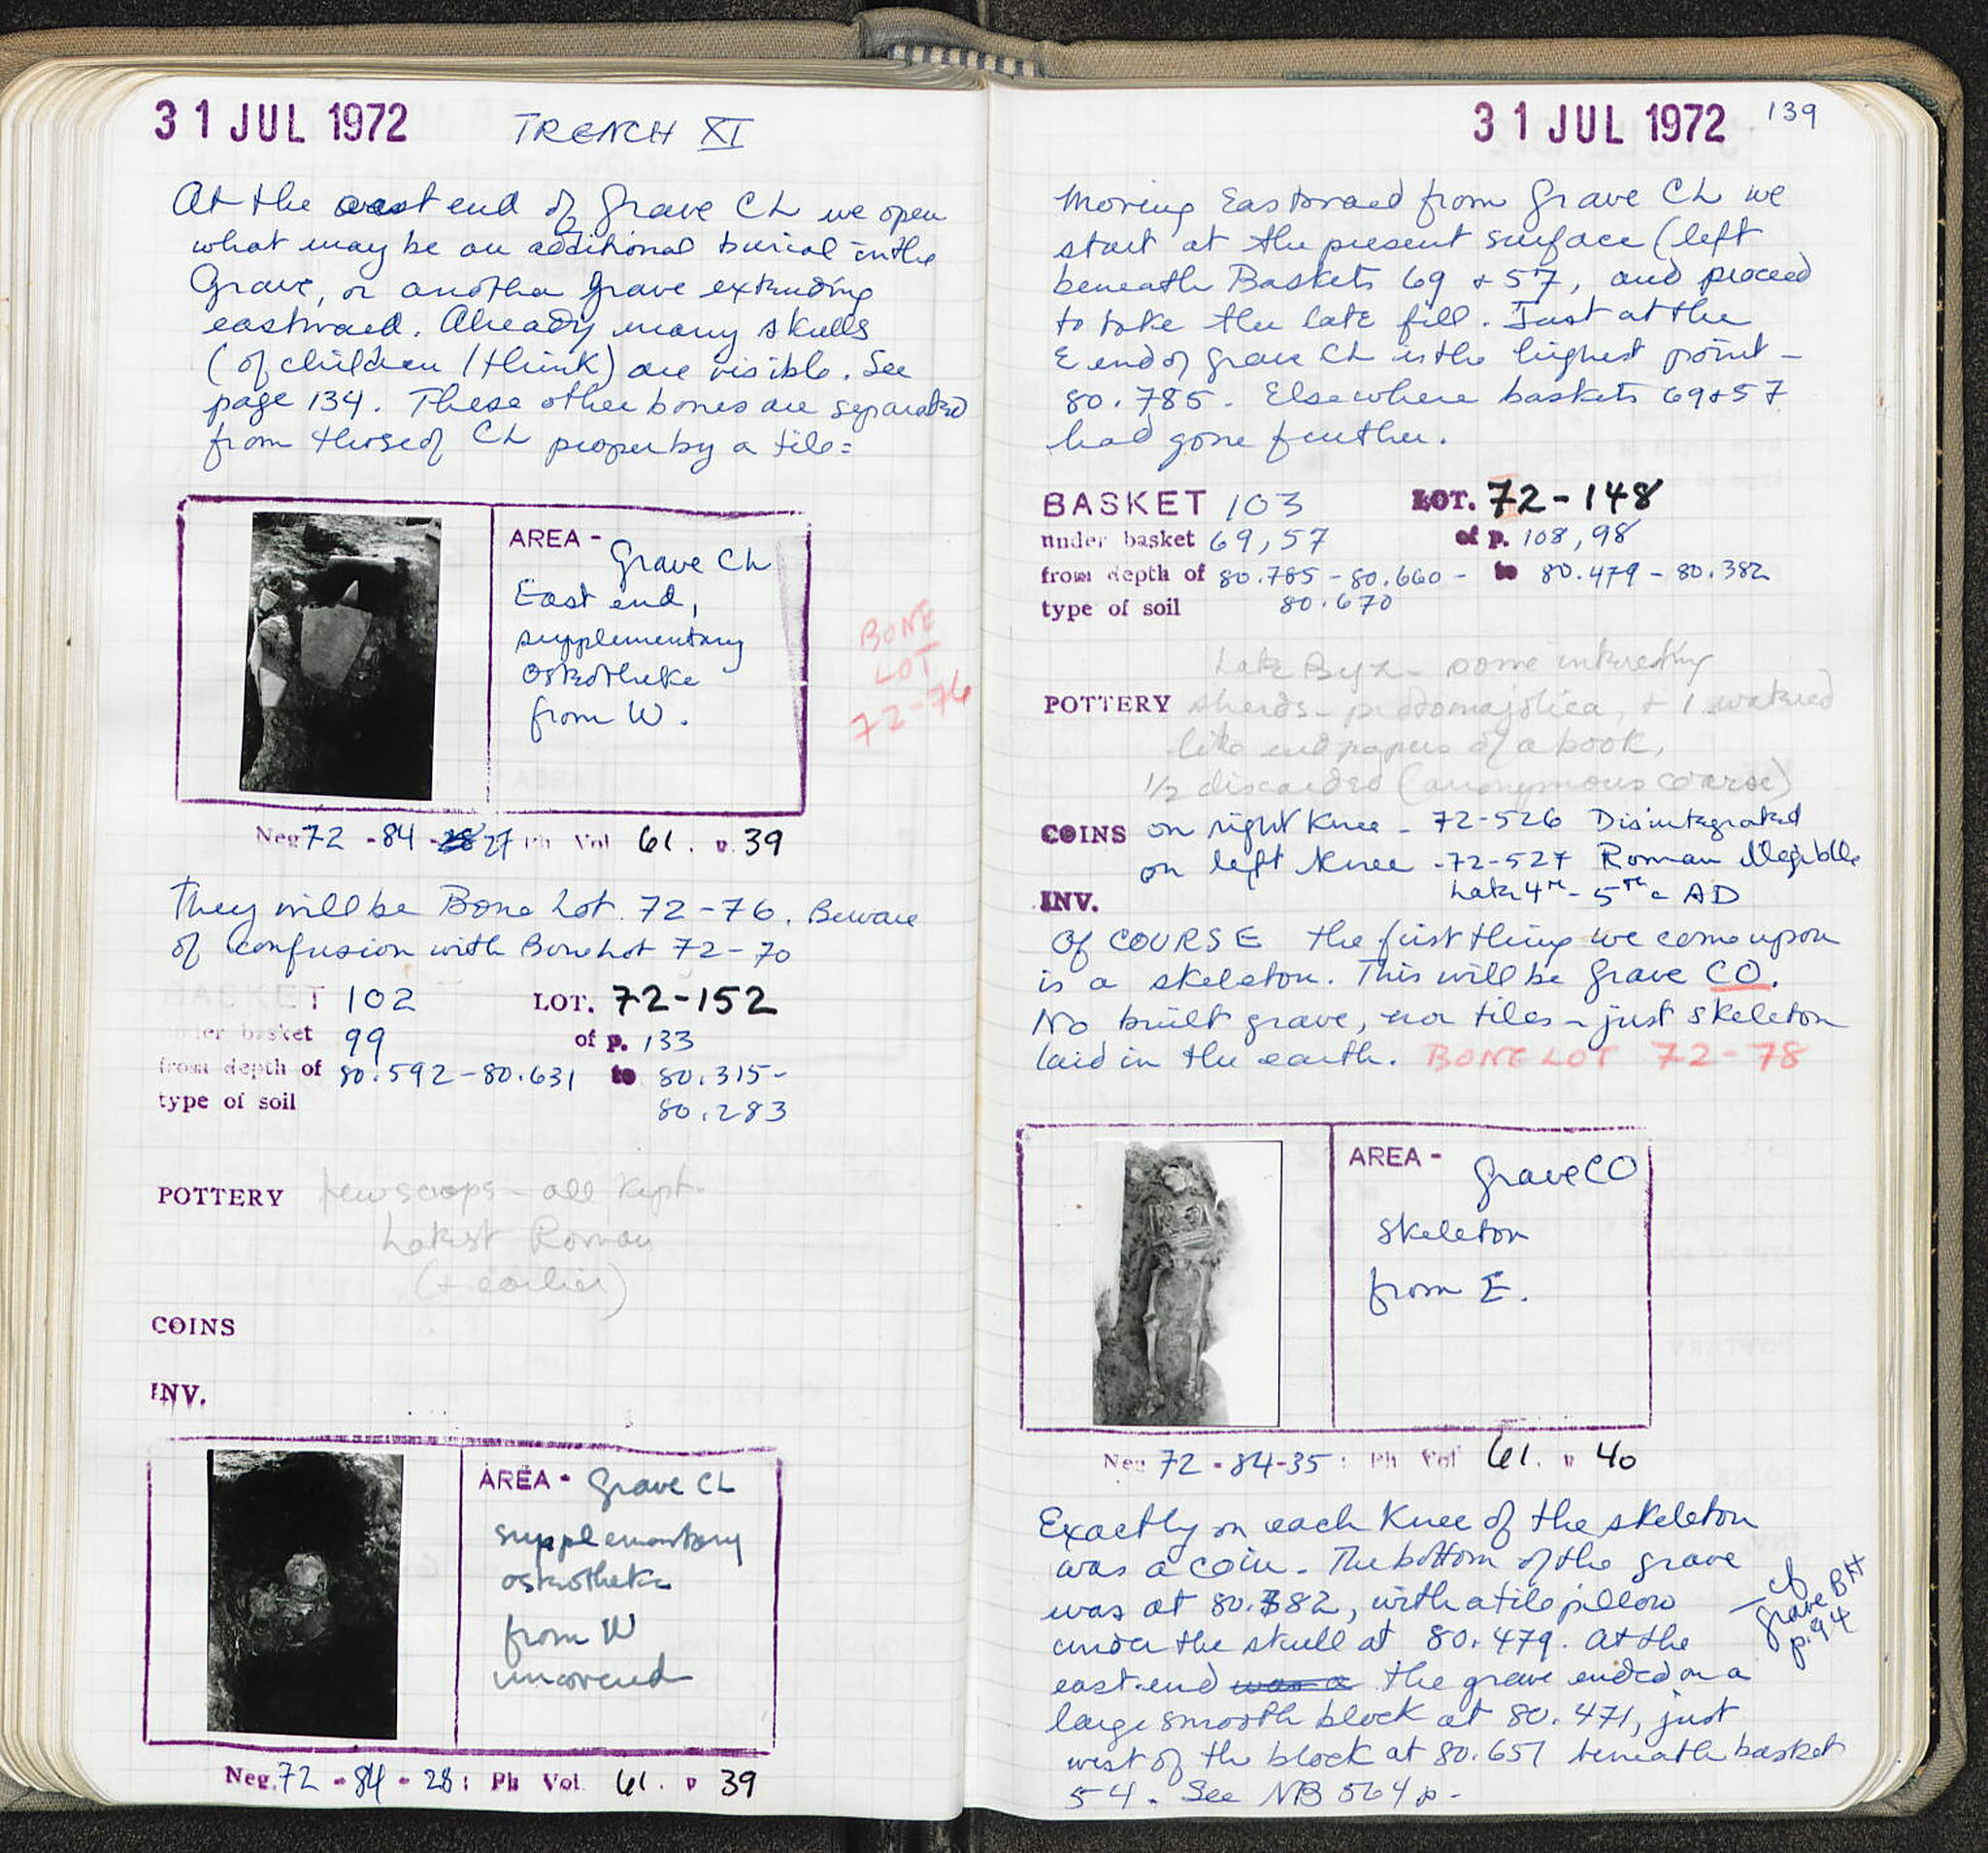 31 JUL 1972 TRENCH XI
At the east end of Grave CL we open
what may be an additional burial in the
Grave, or another grave extending
eastward. Already many skulls
(of children I think) are visible. See
page 134. These other bones are separated
from those of CL proper by a tile:
AREA - Grave CL
East end,
supplementary
Osteotheke
from W.
BONE
LOT
72-76
Neg 72 - 84 - 27 Ph Vol 61. p. 39
They will be Bone Lot 72-76. Beware
of confusion with Bone Lot 72-70
BASKET 102 LOT. 72-152
under basket 99 of p. 133
from depth of 80.592-80.631 to 80.315-
type of soil 80.283
POTTERY few scraps - all kept
Latest Roman
(+ earlier)
COINS
INV.
AREA - Grave CL
supplementary
osteotheke
from W
uncovered
Neg. 72 - 84 - 28: Ph Vol. 61. p 39
31 JUL 1972 139
Moving Eastward from Grave CL we
start at the present surface (left
beneath Baskets 69 + 57, and proceed
to take the late fill. Just at the
E end of grave CL is the highest point -
80.785. Elsewhere baskets 69+57
had gone further.
BASKET 103 LOT. 72-148
under basket 69,57 of p. 108,98
from depth of 80.785-80.660- to 80.479-80.382
type of soil 80.670
Late Byz - some interesting
POTTERY sherds - protomajolica, + 1
like endpapers of a book,
1/2 discarded (anonymous coarse)
COINS on right knee - 72-526 Disintegrated
on left knee - 72-527 Roman illegible
Late 4th - 5th c AD
INV.
Of COURSE the first thing we come upon
is a skeleton. This will be Grave CO.
No built grave, nor tiles - just skeleton
laid in the earth. BONE LOT 72-78
AREA - Grave CO
skeleton
from E.
Neg 72 - 84-35: Ph Vol 61. p 40
Exactly on each Knee of the skeleton
was a coin. The bottom of the grave
was at 80.382, with a tile pillow
under the skull at 80.479. At the
east end was a the grave ended on a
large smooth block at 80.471, just
west of the block at 80.657 beneath basket
54. See NB 564 p.
cf
grave BH
p.94